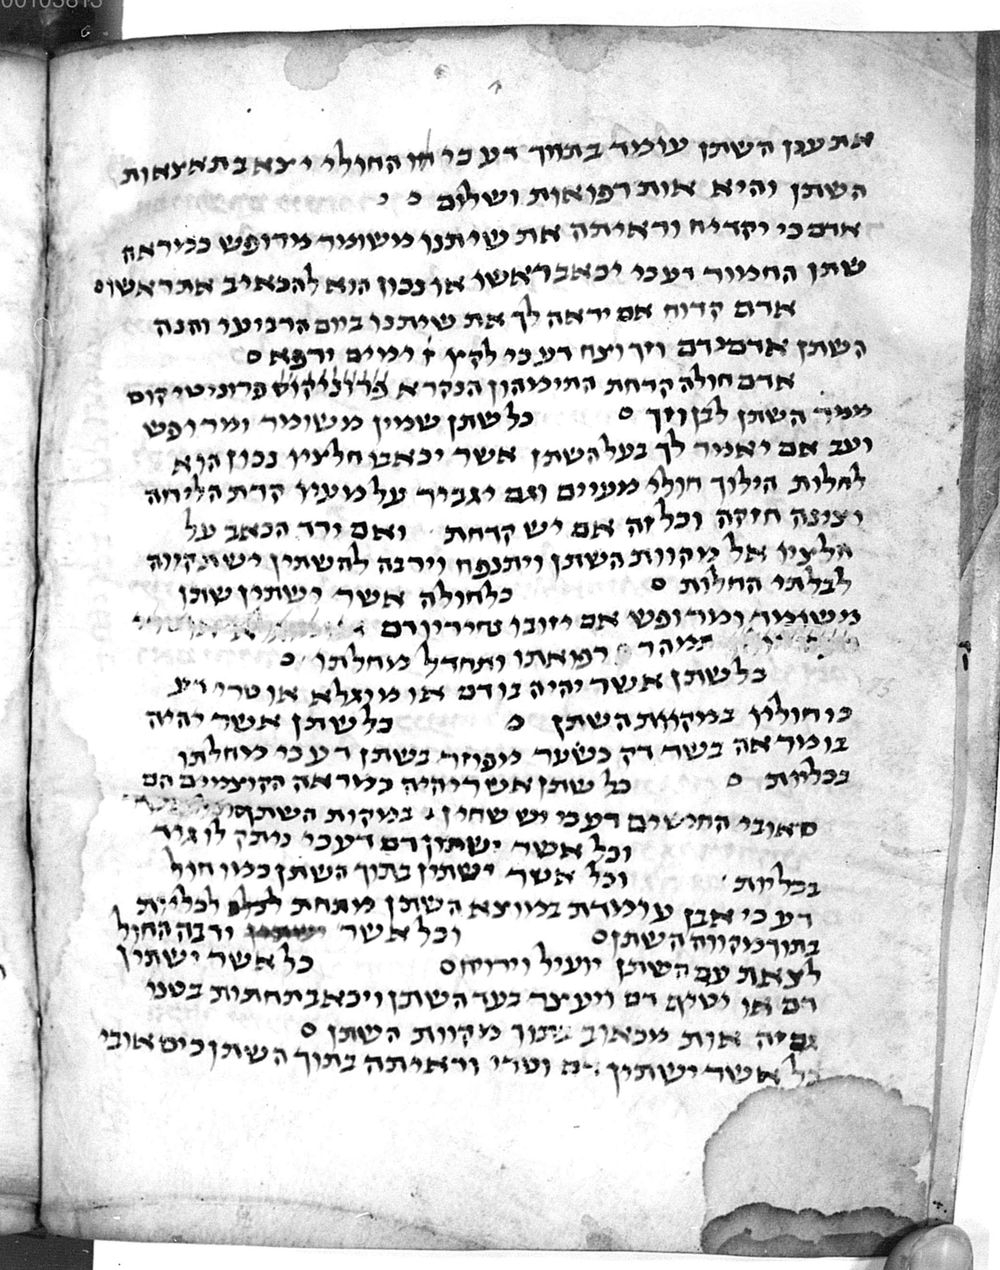 00103813
את ענן השתן עומד בתווך דע כי חו החולי יצא בתאצאות
השתן והיא אות רפואות ושלום
אדם כי יקדיח וראיתה את שיתנו משומר מדופש כמיראה
שתן החמור דע כי יכאב ראשו או נכון הוא להכאיב את ראשו
אדם קדוח אם יראה לך את שיתנו ביום הרביעי והנה
השתן אדם דע כי לקץ ז ימים ירפא
אדם חולה קדחת התימהון הנקרא פרוניטיקוס
השתן לבן וזך כל שתן שמין משומר ומדופש
ועב אם יאמר לך בעל השתן אשר יכאבו חלציו נכון הוא
לחלות הילוך חולי מעיים וגם יגביר על מעיו קרת הליחה
וצינה חזקה וכל זה אם יש קדחת ואם ירד הכאב על
חלציו אל מקוות השתן ויתנפח וירבה להשתין יש תקווה
לבלתי החלות כל חולה אשר ישתין שתן
משומר ומדופש אם יזובו נחיריו דם
תמהר רפואתו ותחדל מחלתו
כל שתן אשר יהיה בו דם או מוגלא או טרי דע
כי חוליו במקוות השתן כל שתן אשר יהיה
בו מראה בשר דק כשער מפוזר בשתן דע כי מחלתו
בכליות כל שתן אשר יהיה כמראה הקוצמים הם
סאובי החיטים דע כי יש שחין במקוות השתן
וכל אשר ישתין דם דע כי ניתק לו גיד
בכליות וכל אשר ישתין בתוך השתן כמו חול
דע כי אבן עומדת במוצא השתן מתחת לכליות
בתוך מקווה השתן וכל אשר ירבה החול
לצאת עם השתן יועיל וירוויח כל אשר ישתין
דם או יטיף דם ויעצר בעד השתן ויכאב תחתית בטנו
גם זה אות מכאוב בתוך מקוות השתן
כל אשר ישתין דם וטרי וראיתה בתוך השתן כיסאובי